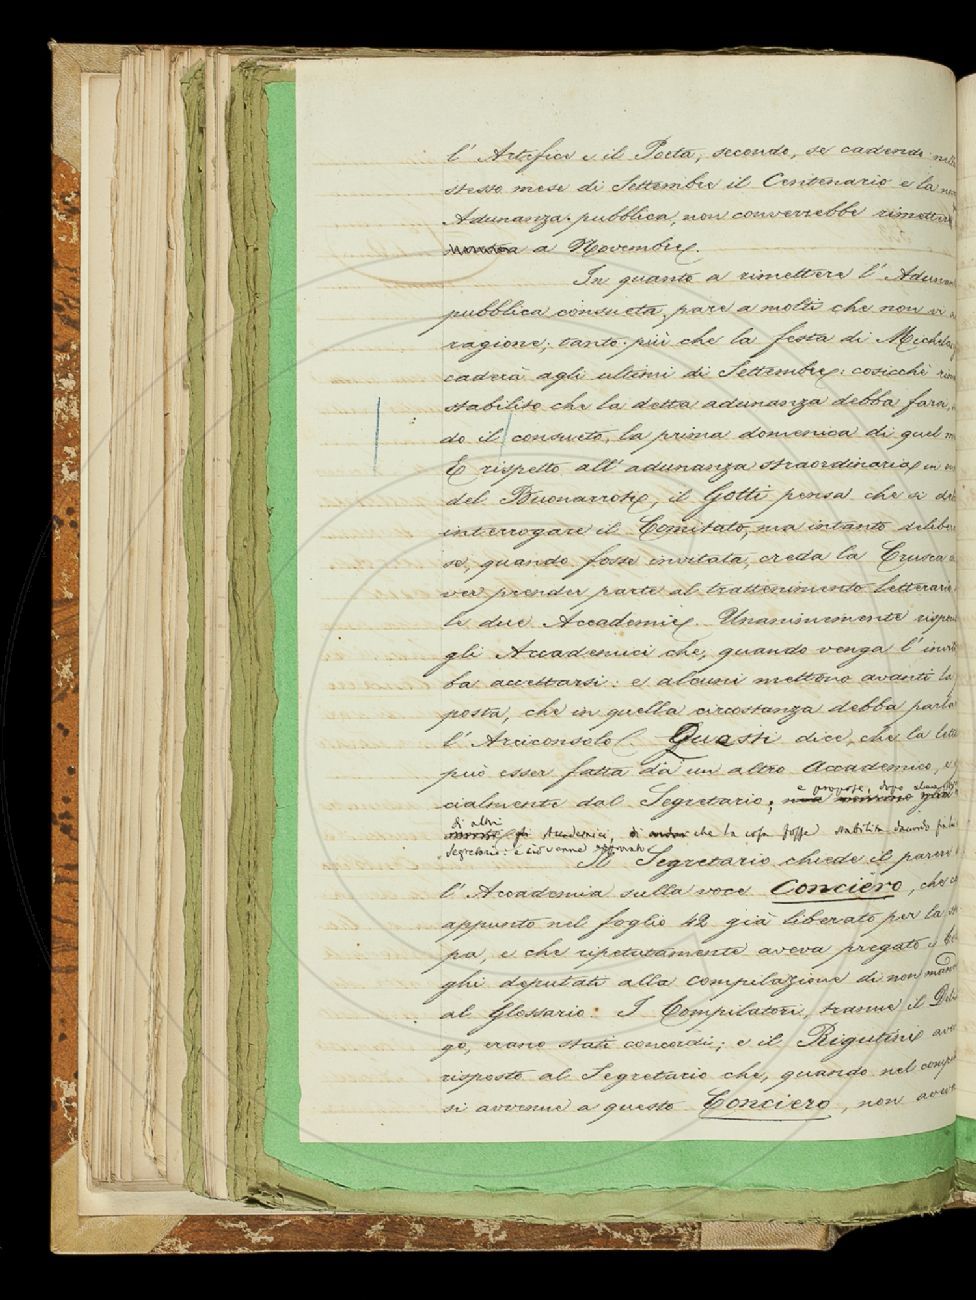 l'Artefice e il Poeta; secondo, se cadendo nello
stesso mese di Settembre il Centenario e la
Adunanza pubblica, non converrebbe rimettere
a Novembre.
In quanto a rimettere l'Adunan
pubblica consueta, pare a molti che non vi
ragione; tanto più che la festa di Michelan
caderà agli ultimi di Settembre: cosicchè
stabilito che la detta adunanza debba farsi,
do il consueto, la prima domenica di quel
E rispetto all'adunanza straordinaria in
del Buonarroti, il Gotti pensa che si de
interrogare il Comitato, ma intanto delibe
se, quando fosse invitata, creda la Crusca
ver prender parte al trattenimento letterario
le due Accademie. Unanimemente rispon
gli Accademici che, quando venga l'invi
ba accettarsi: e alcuni mettono avanti la
posta, che in quella circostanza debba parla
l'Arciconsolo. Questi dice, che la lett
può esser fatta da un altro Accademico, e
cialmente dal Segretario; e propose, dopo
di altri Accademici, che la cosa fosse stabilita
Segretario: e ciò venne approvato.
Il Segretario chiede il parere
l'Accademia sulla voce Conciero, che
appunto nel foglio 42 già liberato per la
pa, e che ripetutamente aveva pregato i
ghi deputati alla compilazione di non mand
al Glossario. I Compilatori, tranne il
go, erano stati concordi; e il Rigutini
risposto al Segretario che, quando nel comp
si avvenne a questo Conciero, non ave